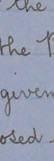 the
the
given
osed